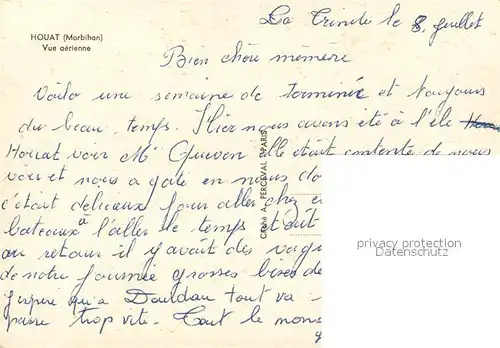 HOUAT (Morbihan)
Vue aérienne
La Trinité le 8 juillet
Bien chère mémère
Voila une semaine de terminée et toujours
du beau temps. Hier nous avons été à l'île
Houat voir Me Guevon Elle était contente de nous
voir et nous a gaté en nous do
c'était délicieux pour aller chez e
bateaux à l'aller le temps était
au retour il y avait des vagu
de notre journée grosses bises de
j'espère qu'a Douldau tout va
passe trop vite. Tout le mons
Cliché A. PERCEVAL PARIS
privacy protection
Datenschutz